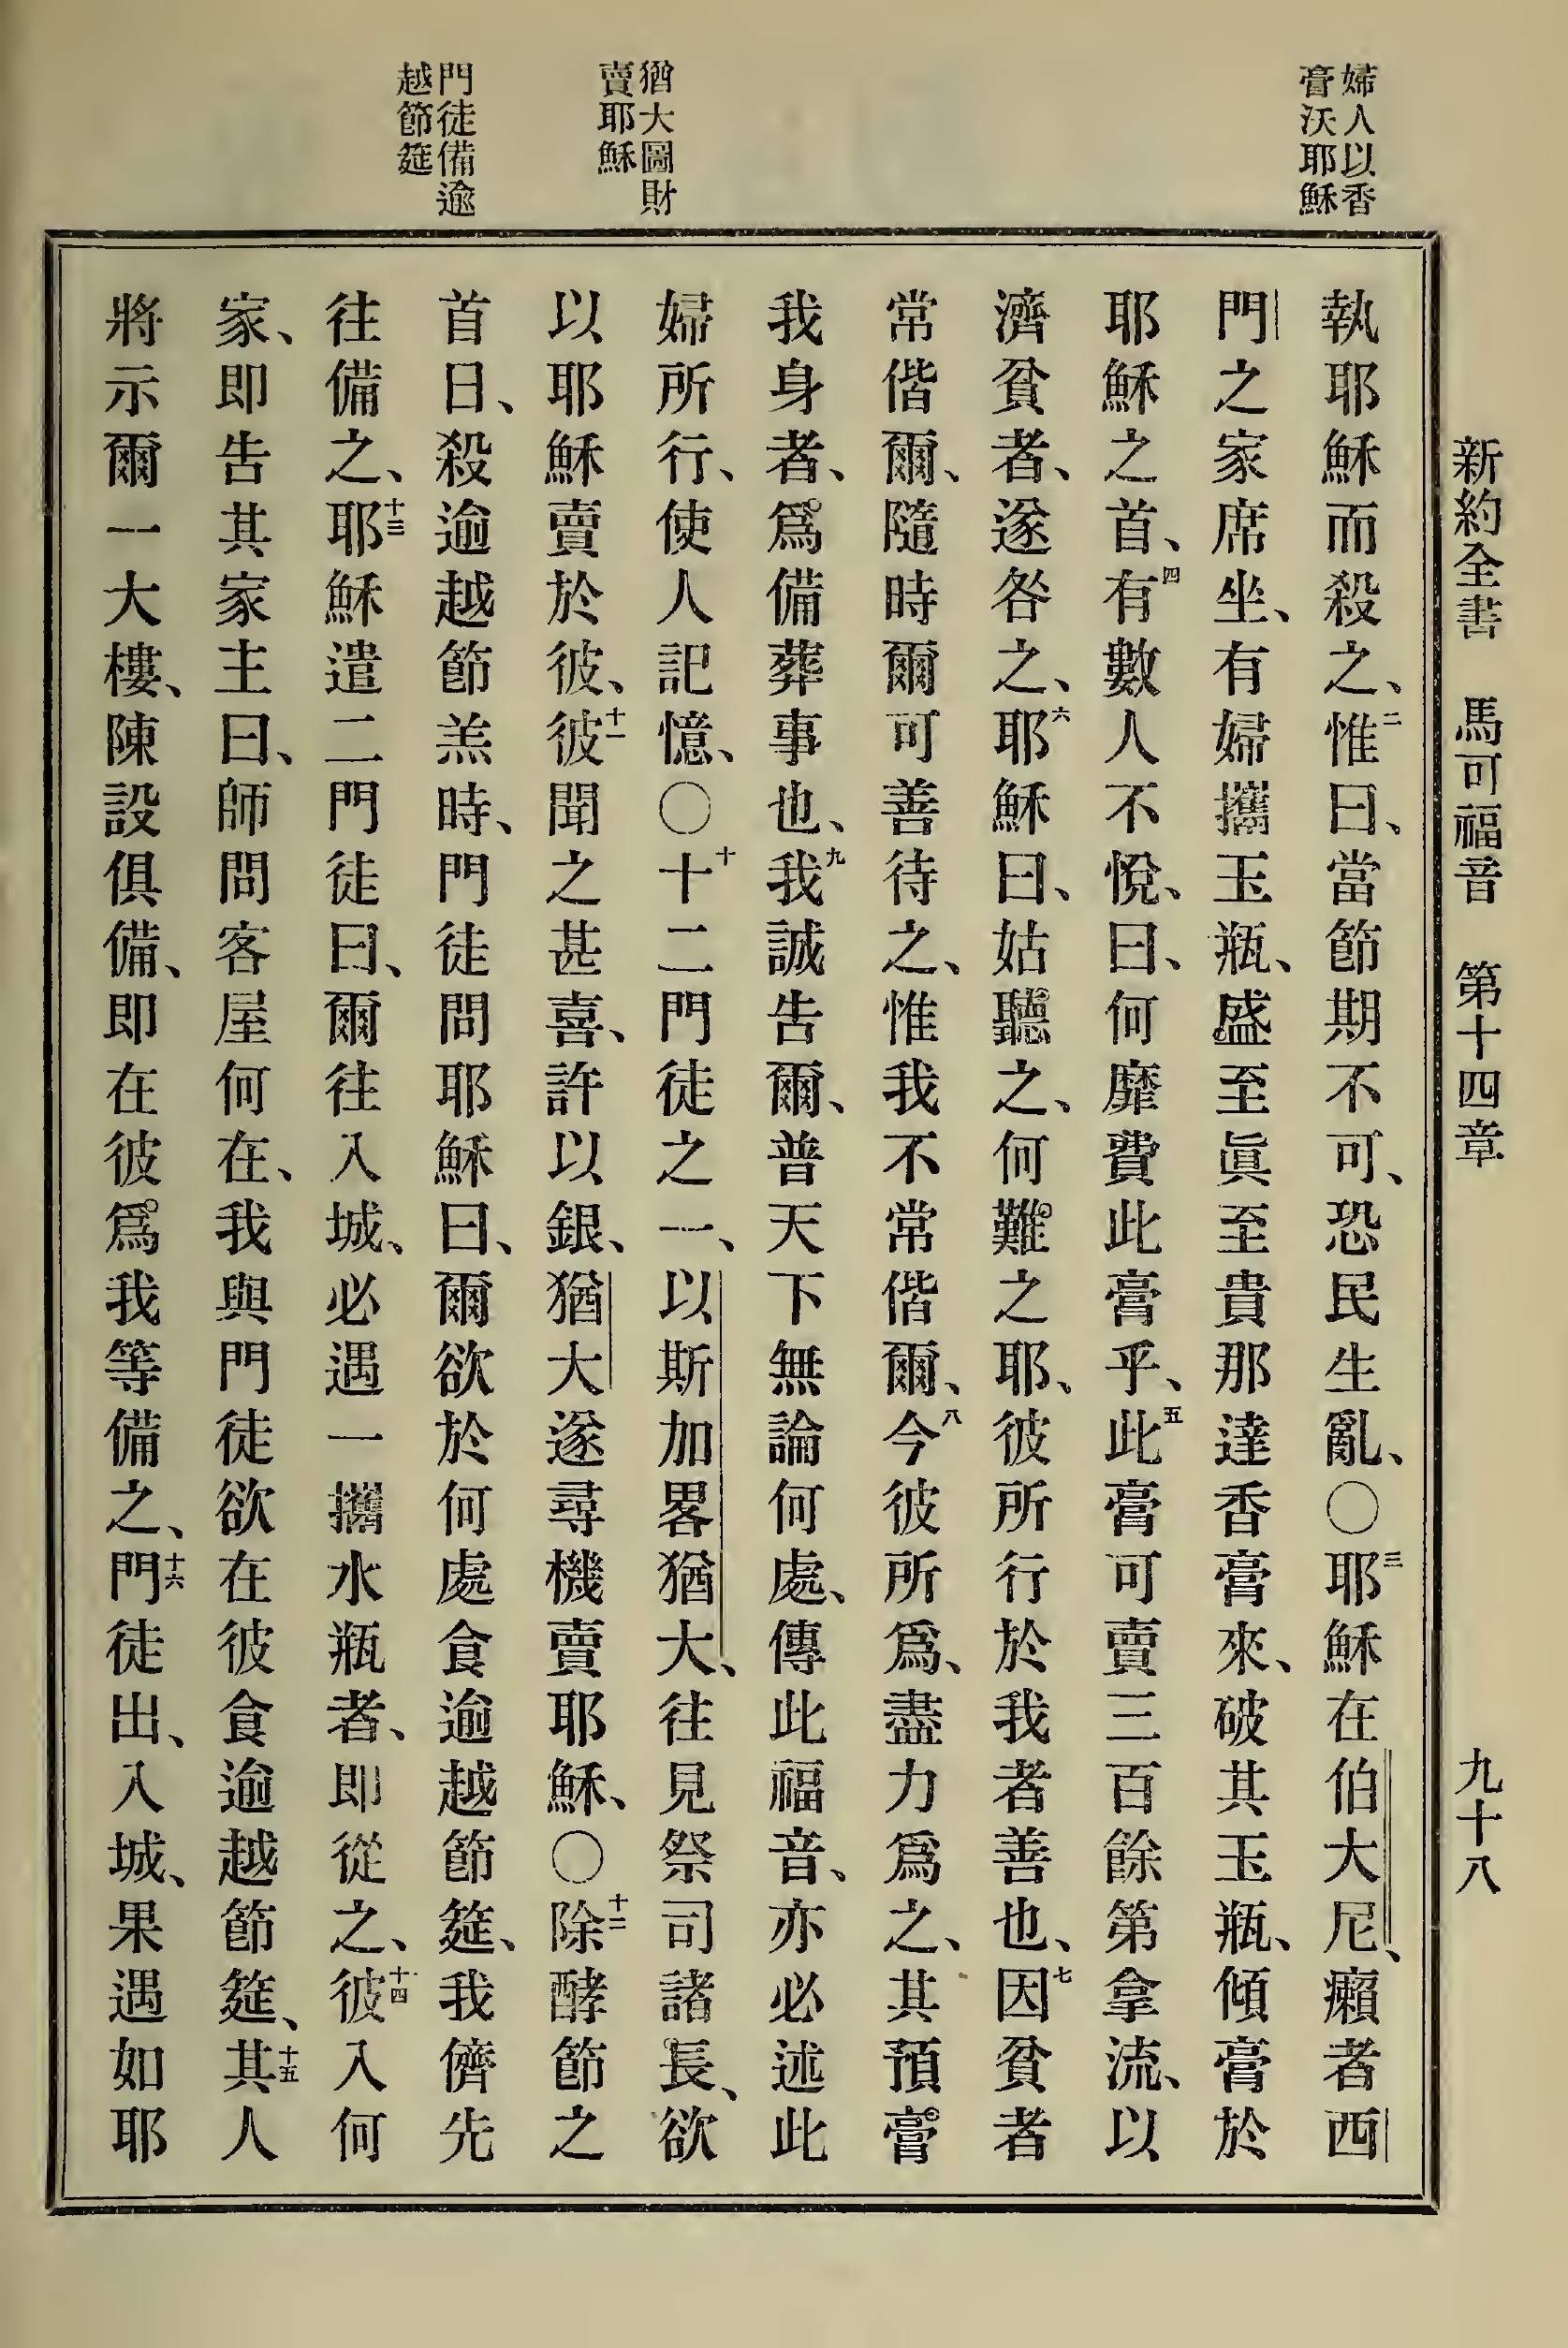 新約全書 馬可福音 第十四章 九十八
婦人以香
膏沃耶穌
猶大圖財
賣耶穌
門徒備逾
越節筵
執耶穌而殺之、二惟曰、當節期不可、恐民生亂、〇三耶穌在伯大尼、癩者西
門之家席坐、有婦攜玉瓶、盛至眞至貴那達香膏來、破其玉瓶、傾膏於
耶穌之首、四有數人不悅、曰、何靡費此膏乎、五此膏可賣三百餘第拿流、以
濟貧者、遂咎之、六耶穌曰、姑聽之、何難之耶、彼所行於我者善也、七因貧者
常偕爾、隨時爾可善待之、惟我不常偕爾、八今彼所爲、盡力爲之、其預膏
我身者、爲備葬事也、九我誠告爾、普天下無論何處、傳此福音、亦必述此
婦所行、使人記憶、〇十十二門徒之一、以斯加畧猶大、往見祭司諸長、欲
以耶穌賣於彼、十一彼聞之甚喜、許以銀、猶大遂尋機賣耶穌、〇十二除酵節之
首日、殺逾越節羔時、門徒問耶穌曰、爾欲於何處食逾越節筵、我儕先
往備之、十三耶穌遣二門徒曰、爾往入城、必遇一攜水瓶者、即從之、十四彼入何
家、即告其家主曰、師問客屋何在、我與門徒欲在彼食逾越節筵、十五其人
將示爾一大樓、陳設俱備、即在彼爲我等備之、十六門徒出、入城、果遇如耶